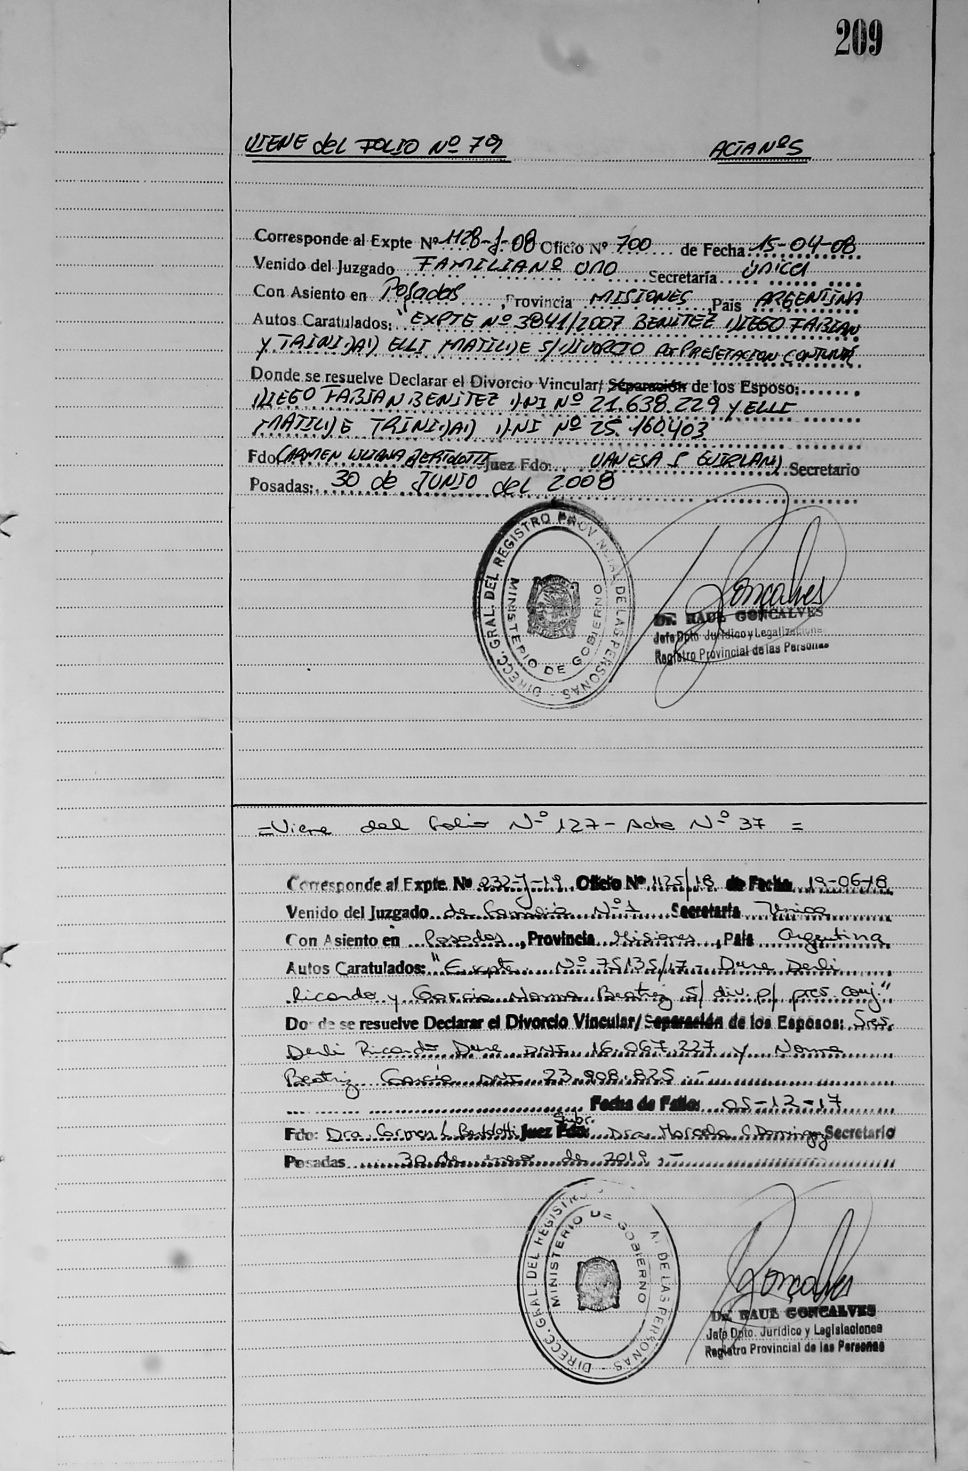 209
VIENE del FOLIO Nº 79 ACTA Nº 5
Corresponde al Expte Nº 1128-J-08 Oficio Nº 700 de Fecha 15-04-08
Venido del Juzgado FAMILIA Nº UNO Secretaría única
Con Asiento en Posadas, Provincia MISIONES, Pais ARGENTINA
Autos Caratulados: "EXPTE Nº 3841/2007 BENITEZ DIEGO FABIAN
y TRINIDAD ELLI MATILDE S/DIVORCIO POR PRESETACION CONJUNTA
Donde se resuelve Declarar el Divorcio Vincular/ Separación de los Esposo:
DIEGO FABIAN BENITEZ DNI Nº 21.638.229 Y ELLI
MATILDE TRINIDAD DNI Nº 25.160.403
Fdo CARMEN LILIANA BERTOLOTTI Juez Fdo: VANESA S Secretario
Posadas: 30 de JUNIO del 2008
DIRECC. GRAL. DEL REGISTRO PROVINCIAL DE LAS PERSONAS
MINISTERIO DE GOBIERNO
Goncalves
Dr. RAUL GONCALVES
Jefe Dpto Jurídico y Legalizaciones
Registro Provincial de las Personas
=Viene del Folio Nº 127- Acta Nº 37 =
Corresponde al Expte. Nº 232-J-19 Oficio Nº 1125/18 de Fecha 19-06-18
Venido del Juzgado de Familia Nº 1 Secretaría Unica
Con Asiento en Posadas, Provincia Misiones, País Argentina
Autos Caratulados: "Expte. Nº 75135/17 Derli
Ricardo y Garcia Norma Beatriz S/ div. p/ pres. conj."
Donde se resuelve Declarar el Divorcio Vincular/ Separación de los Esposos: Sres.
Derli Ricardo DNI 16.067.227 y Norma
Beatriz Garcia DNI 23.808.825.-
Fecha de Fallo: 05-12-17
Fdo: Dra. Carmen L. Juez Subr. Fdo: Dra. Marcela Secretario
Posadas 30 de de
DIRECC. GRAL. DEL REGISTRO DE LAS PERSONAS
MINISTERIO DE GOBIERNO
Goncalves
Dr. RAUL GONCALVES
Jefe Dpto. Jurídico y Legislaciones
Registro Provincial de las Personas